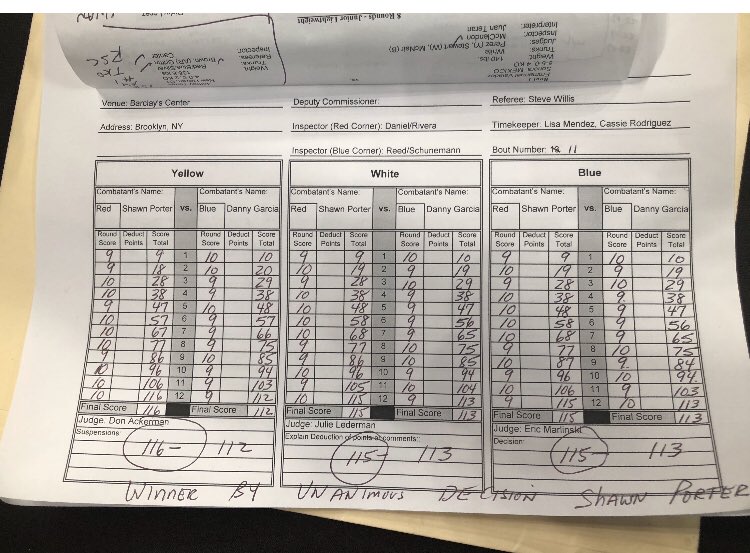 8 Rounds - Junior Lightweight
Interpreter: Juan Teran
Judges: Perez (Y), Stewart (W), McNair (B)
Trunks: White
Weight: 140 lbs.
Inspector: McClendon
TKO
RSC
Venue: Barclay's Center Deputy Commissioner: Referee: Steve Willis
Address: Brooklyn, NY Inspector (Red Corner): Daniel/Rivera Timekeeper: Lisa Mendez, Cassie Rodriguez
Inspector (Blue Corner): Reed/Schunemann Bout Number: 11
Yellow White Blue
Combatant's Name: Combatant's Name: Combatant's Name: Combatant's Name: Combatant's Name: Combatant's Name:
Red Shawn Porter vs. Blue Danny Garcia Red Shawn Porter vs. Blue Danny Garcia Red Shawn Porter vs. Blue Danny Garcia
Round Deduct Score Round Deduct Score Round Deduct Score Round Deduct Score Round Deduct Score Round Deduct Score
Score Points Total Score Points Total Score Points Total Score Points Total Score Points Total Score Points Total
9 9 1 10 10 9 9 1 10 10 9 9 1 10 10
9 18 2 10 20 10 19 2 9 19 10 19 2 9 19
10 28 3 9 29 9 28 3 10 29 9 28 3 10 29
10 38 4 9 38 10 38 4 9 38 10 38 4 9 38
9 47 5 10 48 10 48 5 9 47 10 48 5 9 47
10 57 6 9 57 10 58 6 9 56 10 58 6 9 56
10 67 7 9 66 10 68 7 9 65 10 68 7 9 65
10 77 8 9 75 9 77 8 10 75 9 77 8 10 75
9 86 9 10 85 9 86 9 10 85 10 87 9 9 84
10 96 10 9 94 10 96 10 9 94 9 96 10 10 94
10 106 11 9 103 9 105 11 10 104 10 106 11 9 103
10 116 12 9 112 10 115 12 9 113 9 115 12 10 113
Final Score 116 Final Score 112 Final Score 115 Final Score 113 Final Score 115 Final Score 113
Judge: Don Ackerman Judge: Julie Lederman Judge: Eric Marlinski
Suspensions: Explain Deduction of points or comments: Decision:
116- 112 115- 113 115- 113
WINNER BY UNANIMOUS DECISION SHAWN PORTER